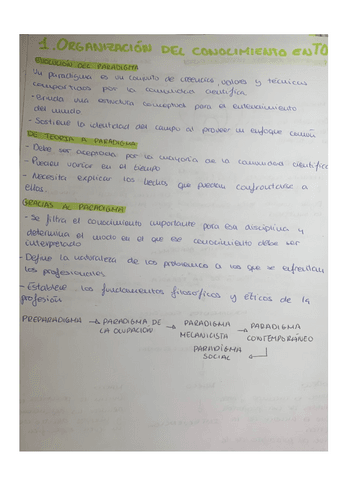 1. ORGANIZACIÓN DEL CONOCIMIENTO EN TO
EVOLUCIÓN DEL PARADIGMA
Un paradigma es un conjunto de creencias, valores y técnicas
compartidas por la comunidad científica
- Brinda una estructura conceptual para el entendimiento
del mundo
- Sostiene la identidad del campo al proveer un enfoque común
DE TEORÍA A PARADIGMA:
- Debe ser aceptada por la mayoría de la comunidad científica
- Pueden variar en el tiempo
- Necesita explicar los hechos que puedan confrontarse a
ellos.
GRACIAS AL PARADIGMA
- Se filtra el conocimiento importante para esa disciplina y
determina el modo en el que ese conocimiento debe ser
interpretado
- Define la naturaleza de los problemas a los que se enfrentan
los profesionales
- Establece los fundamentos filosóficos y éticos de la
profesión
PREPARADIGMA → PARADIGMA DE LA OCUPACION → PARADIGMA MECANICISTA → PARADIGMA CONTEMPORÁNEO
PARADIGMA SOCIAL